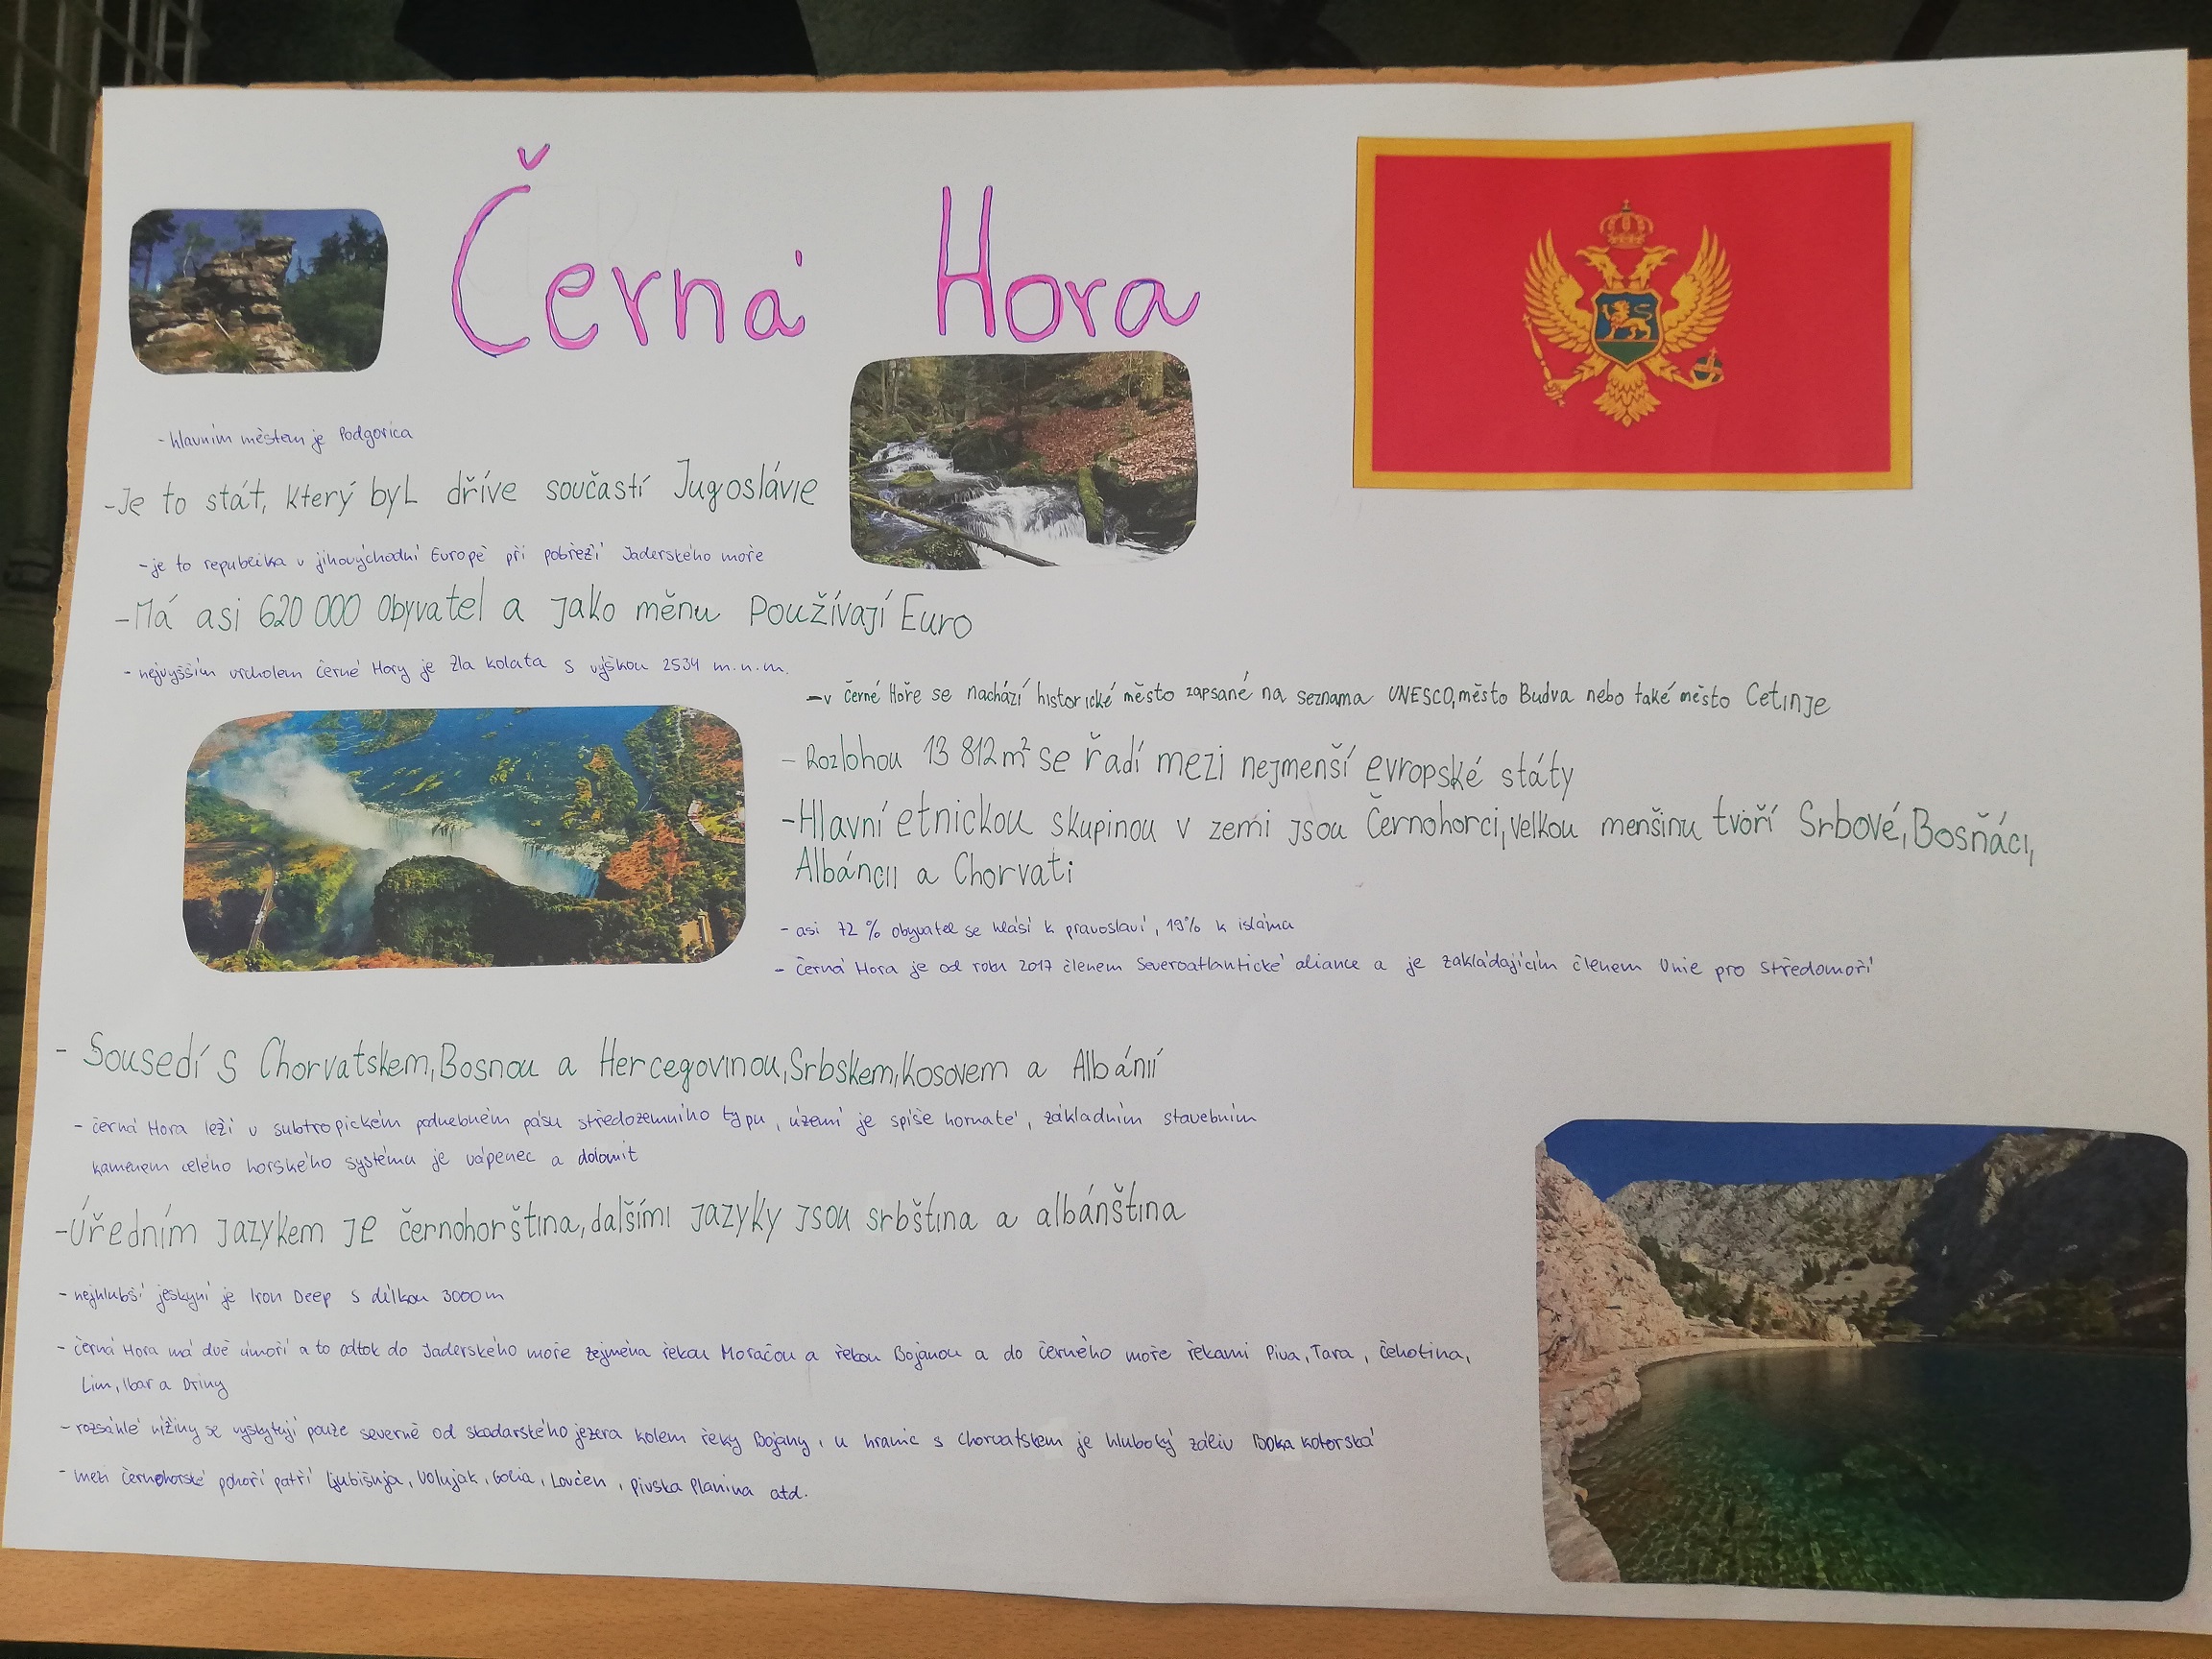 Černá Hora
-hlavním městem je Podgorica
-Je to stát, který byl dříve součastí Jugoslávie
-je to republika v jihovýchodní Evropě při pobřeží Jaderského moře
-Má asi 620 000 obyvatel a jako měnu používají Euro
-nejvyšším vrcholem černé Hory je Zla kolata s výškou 2534 m.n.m.
-v černé Hoře se nachází historické město zapsané na seznama UNESCO,město Budva nebo také město Cetinje
-Rozlohou 13 812m² se řadí mezi nejmenší evropské státy
-Hlavní etnickou skupinou v zemi jsou Černohorci,velkou menšinu tvoří Srbové,Bosňáci,
Albáncii a Chorvati
-asi 72 % obyvatel se hlásí k pravoslaví, 19% k islámu
-černá Hora je od roku 2017 členem Severoatlantické aliance a je zakládajícím členem Unie pro středomoří
-Sousedí s Chorvatskem,Bosnou a Hercegovinou,Srbskem,Kosovem a Albánií
-černá Hora leží v subtropickém podnebném pásu středozemního typu, území je spíše hornaté, základním stavebním
kamenem celého horského systému je vápenec a dolomit
-Úředním jazykem je černohorština,dalšími jazyky jsou srbština a albánština
-nejhlubší jeskyní je Iron Deep s délkou 3000m
-černá Hora má dvě úmoří a to odtok do Jaderského moře zejména řekou Moračou a řekou Bojanou a do černého moře řekami Piva, Tara, čehotina,
Lim, Ibar a Driny
-rozsáhlé nížiny se vyskytují pouze severně od skadarského jezera kolem řeky Bojany, u hranic s Chorvatskem je hluboký záliv Boka kotorská
-mezi černohorské pohoří patří ljubišnja, Volujak, Golia, Lovćen, Pivska Planina atd.